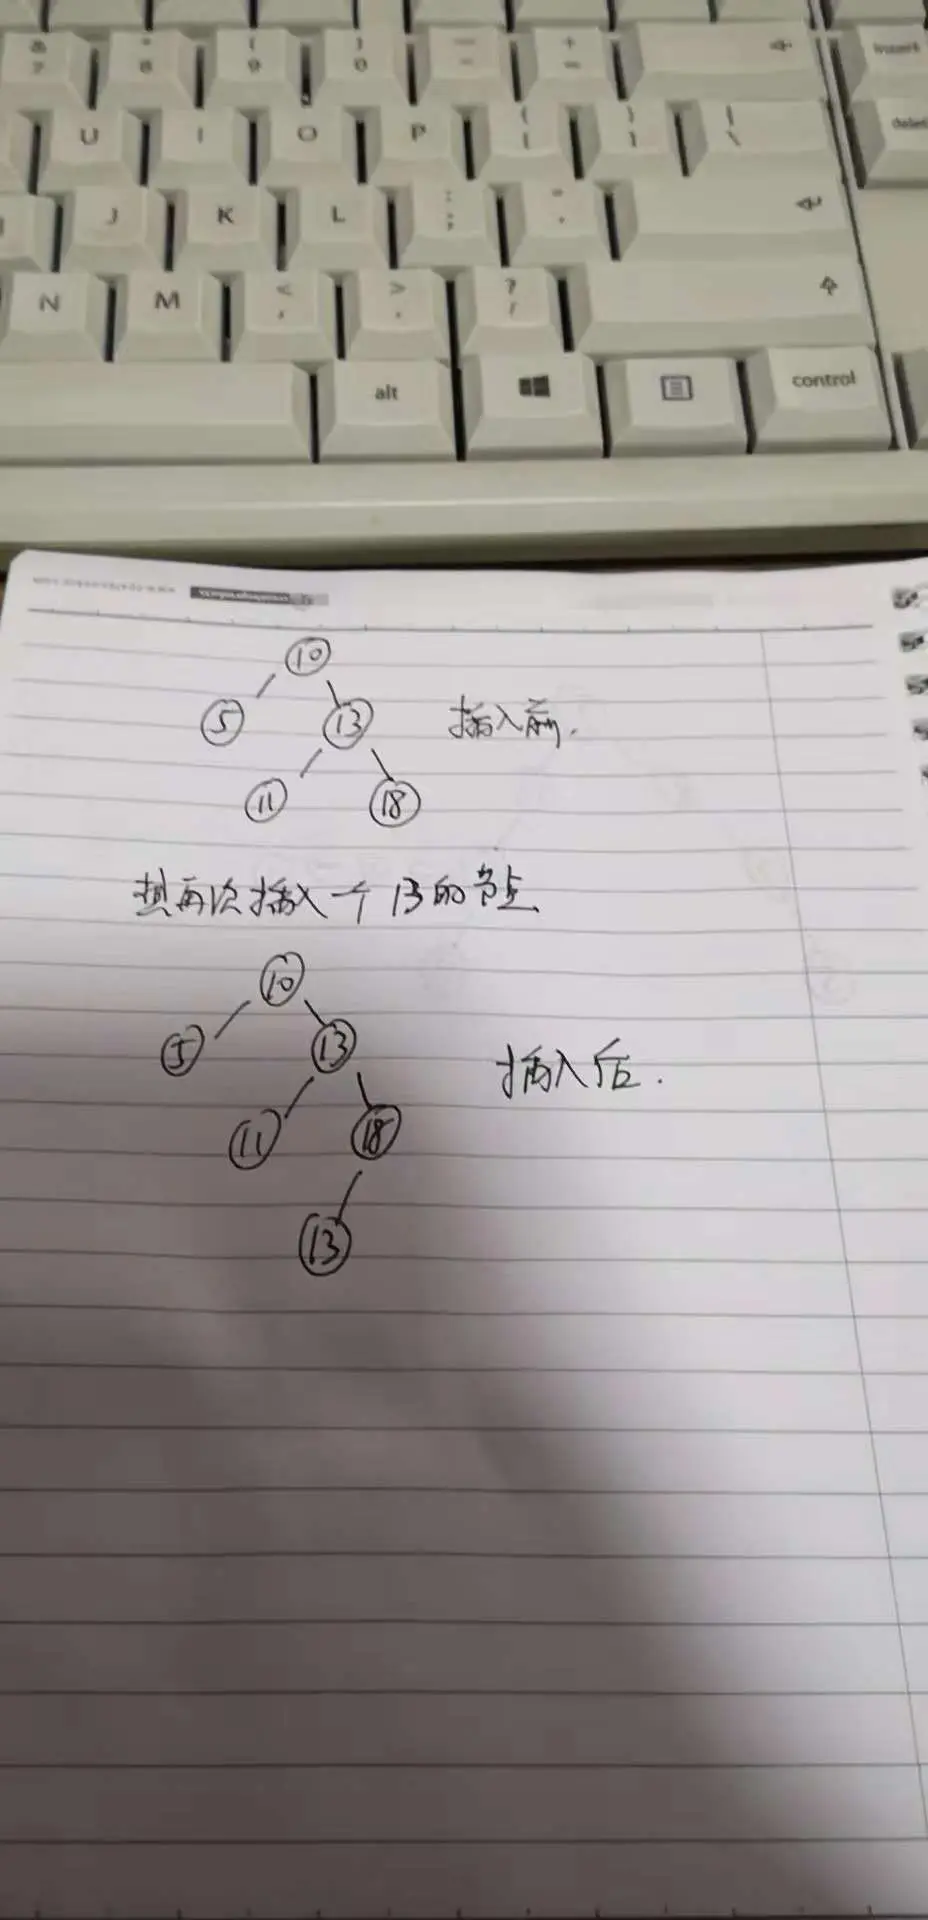 & 7 * 8 ( 9 ) 0 — - + = insert
U I O P { [ } ] | \ delete
J K L : ; " '
N M < , > . ? /
alt control
10
5 13 插入前.
11 18
想再次插入一个13的节点
10
5 13 插入后.
11 18
13